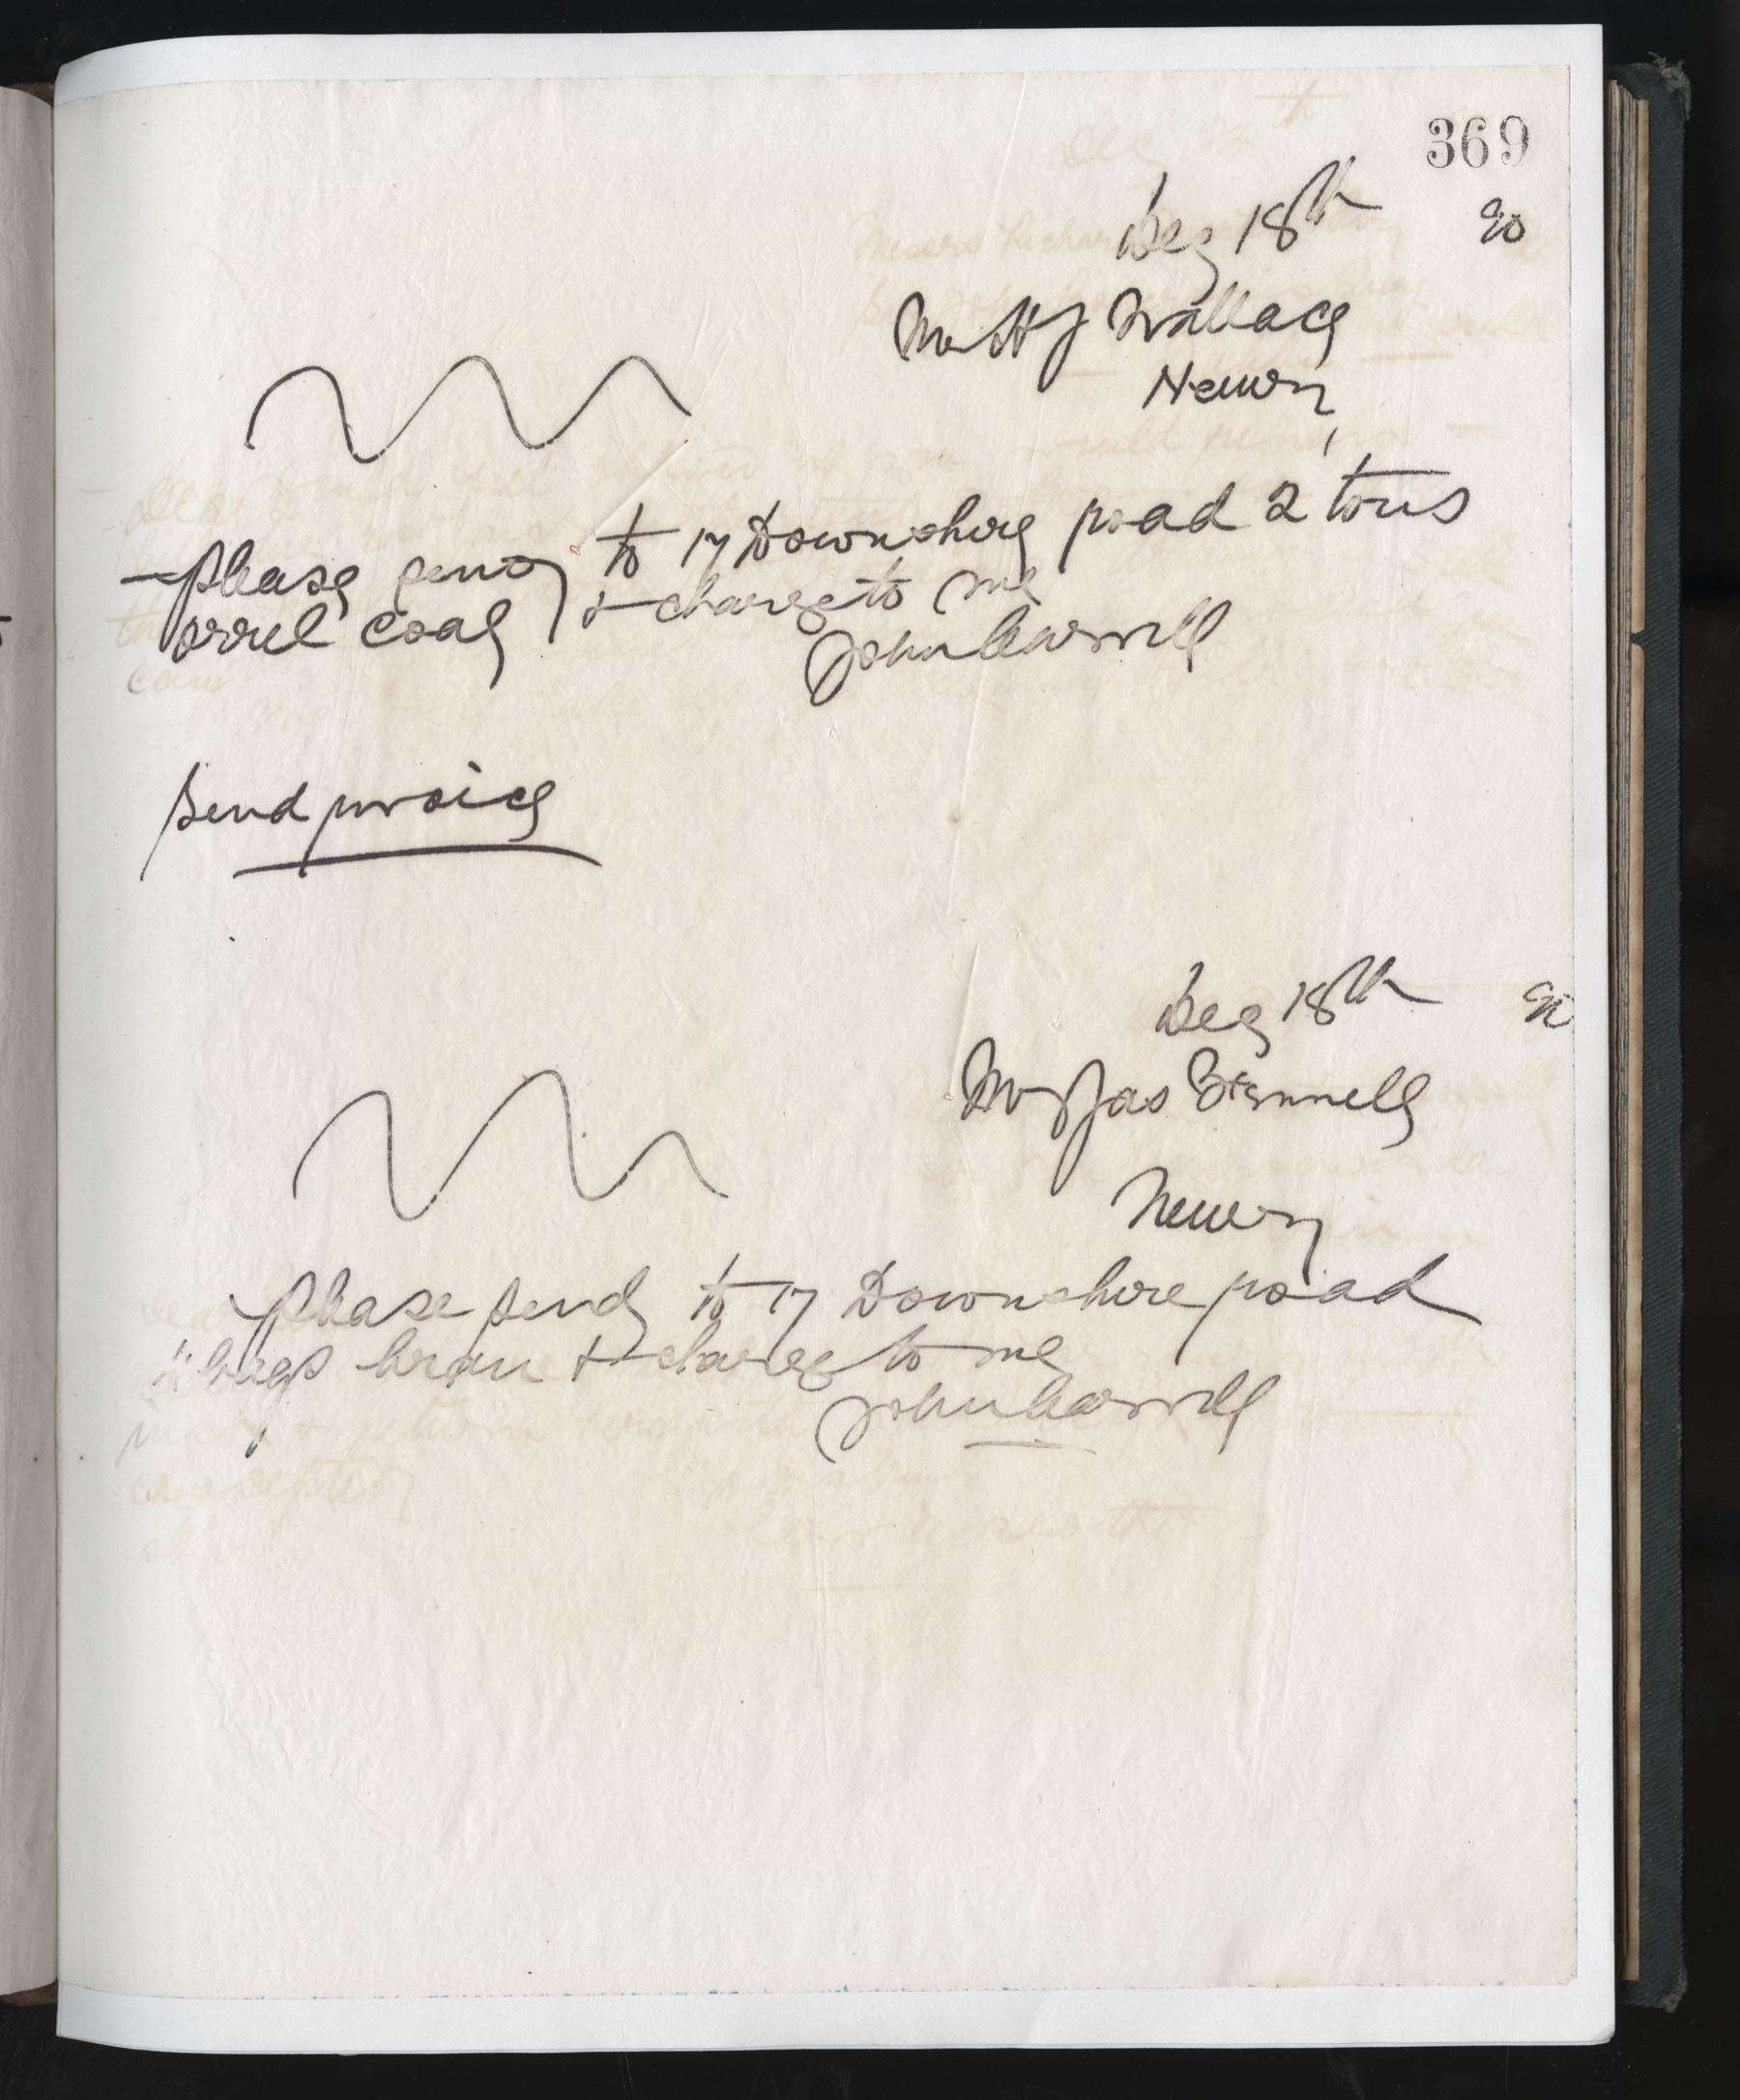 369
Dec 18th 90
Mr H J Wallace
Newry
Please send to 17 Downshire road 2 tons
orrel coal & charge to me
John Carvill
Send invoice
Dec 18th 90
Mr Jas
Newry
Please send to 17 Downshire road
bags bran & charge to me
John Carvill